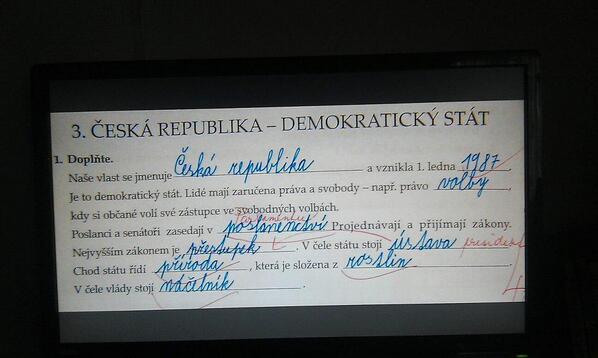 3. ČESKÁ REPUBLIKA – DEMOKRATICKÝ STÁT
1. Doplňte.
Naše vlast se jmenuje Česká republika a vznikla 1. ledna 1987.
Je to demokratický stát. Lidé mají zaručena práva a svobody – např. právo volby,
kdy si občané volí své zástupce ve svobodných volbách.
Parlamentu
Poslanci a senátoři zasedají v poslanenctví Projednávají a přijímají zákony.
Nejvyšším zákonem je přestupek. V čele státu stojí ústava president
Chod státu řídí příroda, která je složena z rostlin.
V čele vlády stojí náčelník.